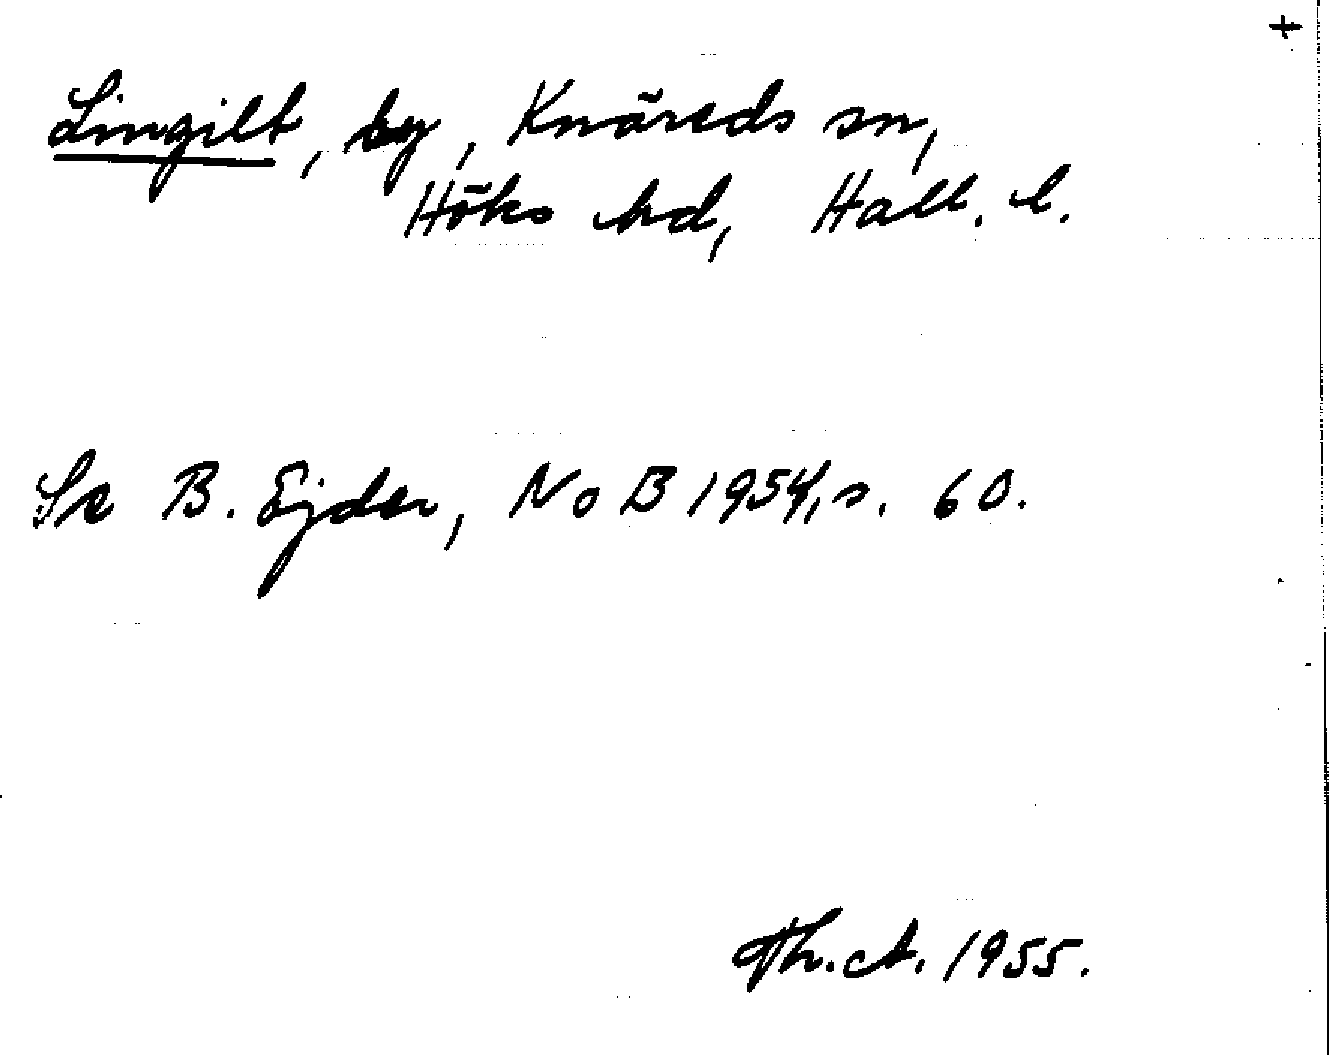 +
Lingilt, by, Knäreds sn,
Höks hd, Hall. l.
Se B. Ejder, NoB 1954, s. 60.
Th. A. 1955.